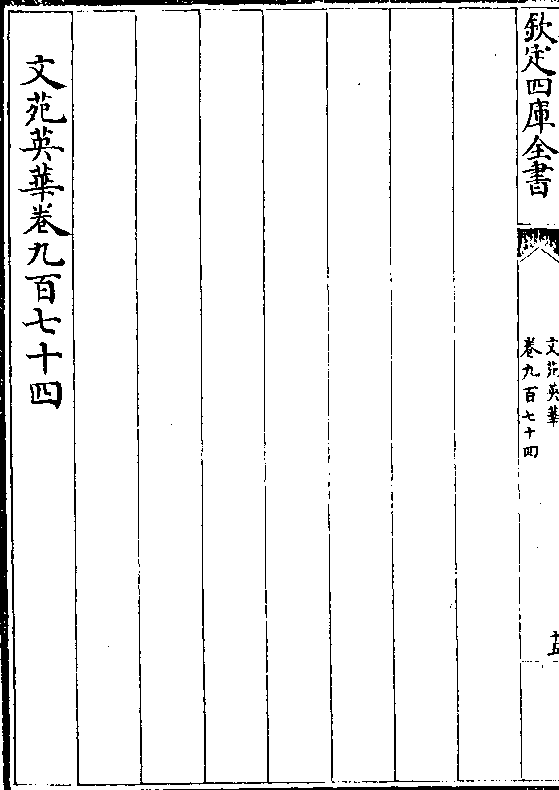 欽定四庫全書
文苑英華
卷九百七十四
十五
文苑英華卷九百七十四